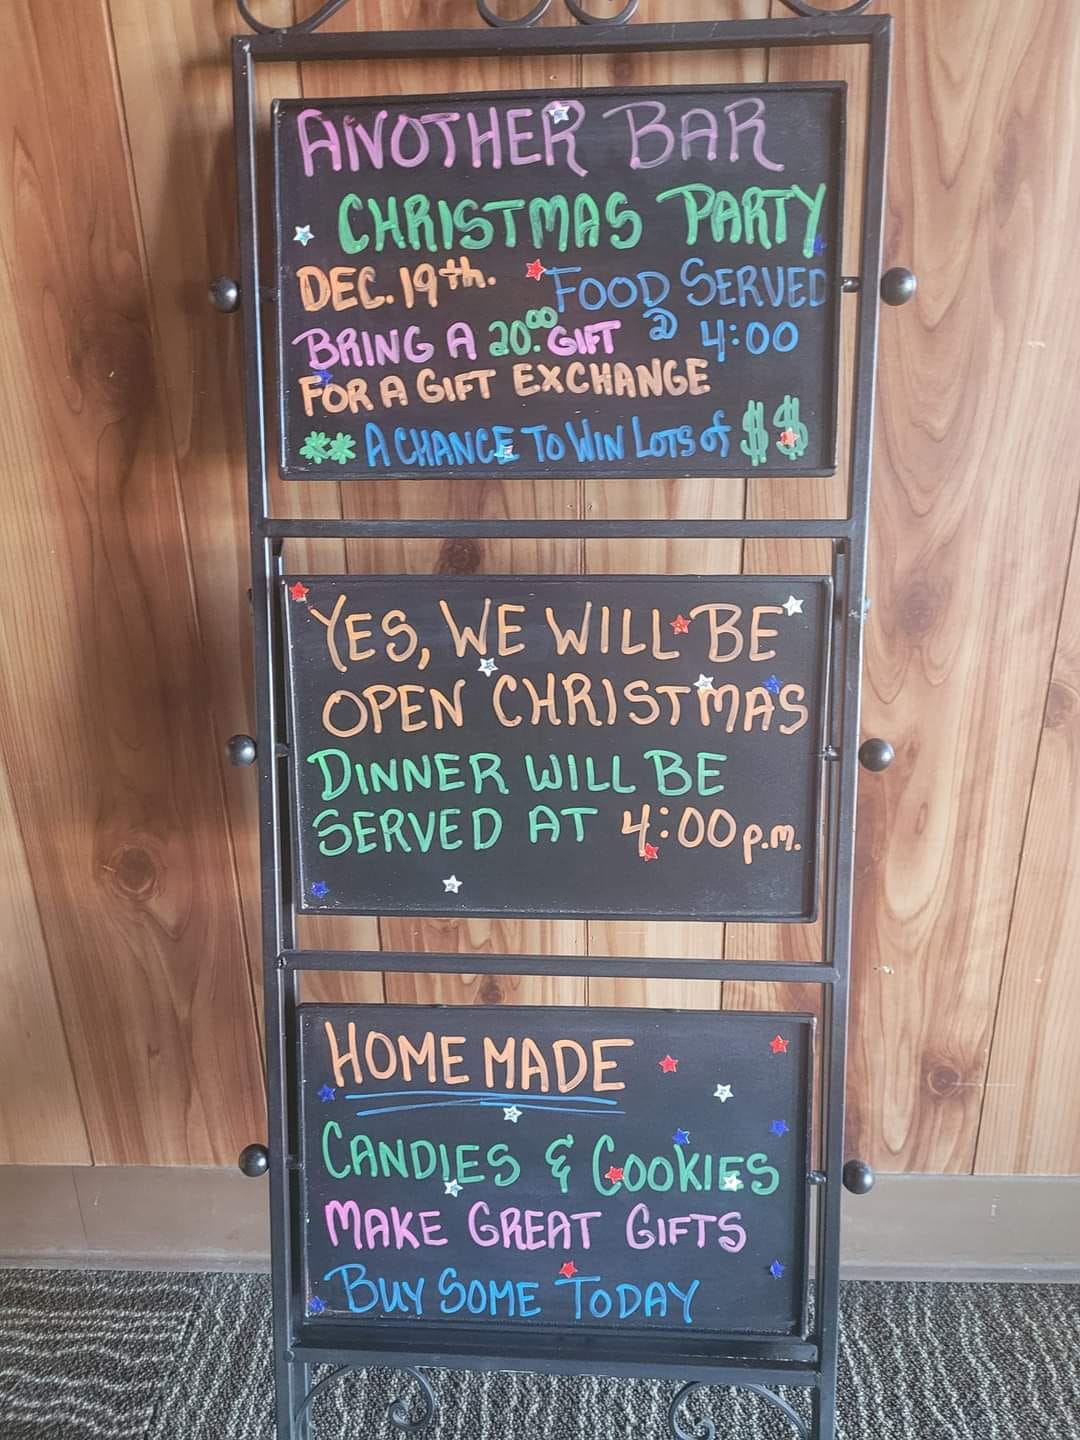 ANOTHER BAR
CHRISTMAS PARTY
DEC. 19th. FOOD SERVED
BRING A 20.00 GIFT @ 4:00
FOR A GIFT EXCHANGE
** A CHANCE TO WIN LOTS of $$
YES, WE WILL BE
OPEN CHRISTMAS
DINNER WILL BE
SERVED AT 4:00 p.m.
HOME MADE
CANDIES & COOKIES
MAKE GREAT GIFTS
BUY SOME TODAY